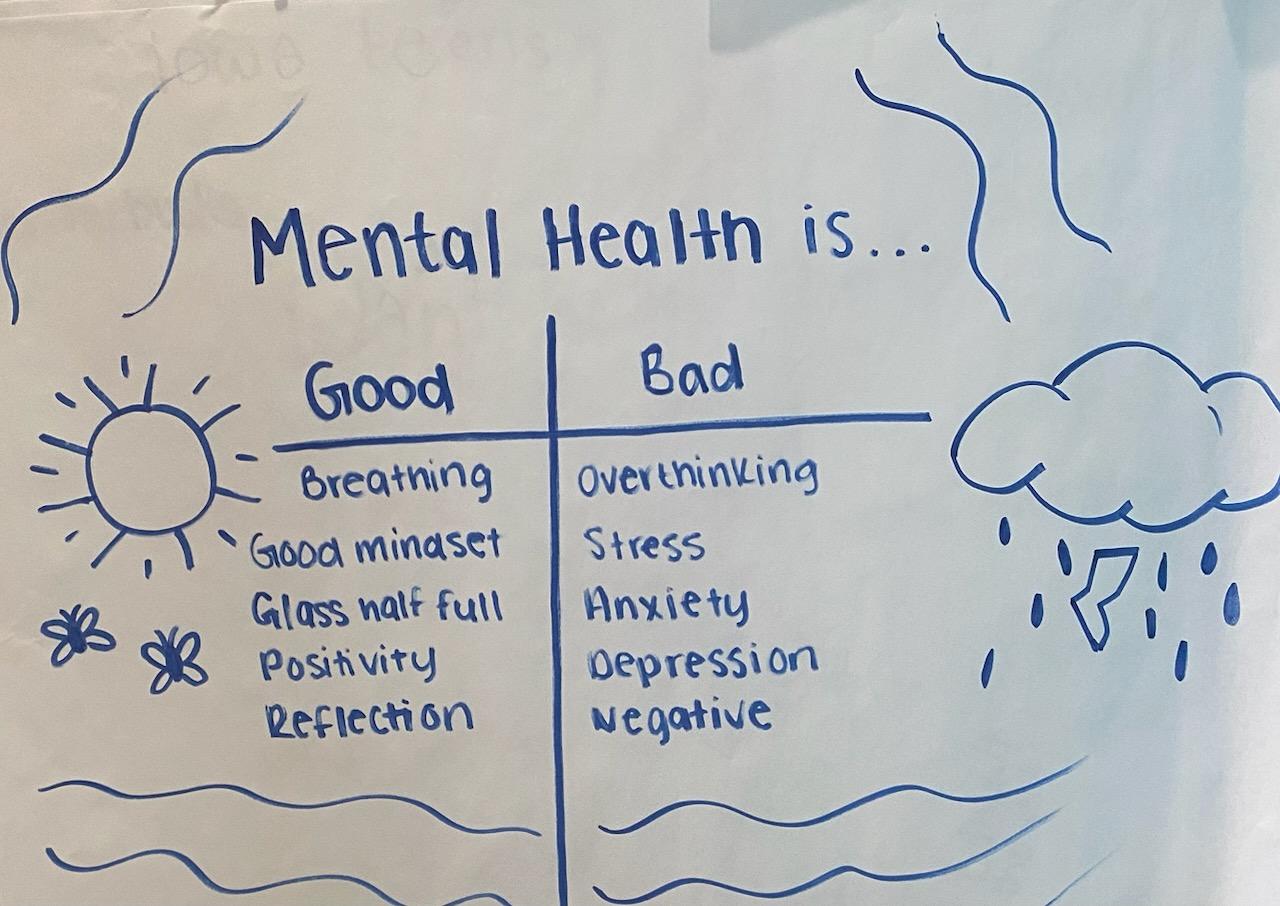 Mental Health is...
Good
Bad
Breathing
Good mindset
Glass half full
Positivity
Reflection
Overthinking
Stress
Anxiety
Depression
Negative